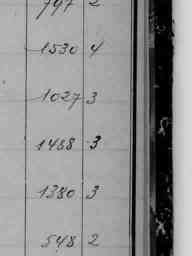 747 2
1530 4
1027 3
1488 3
1380 3
548 2